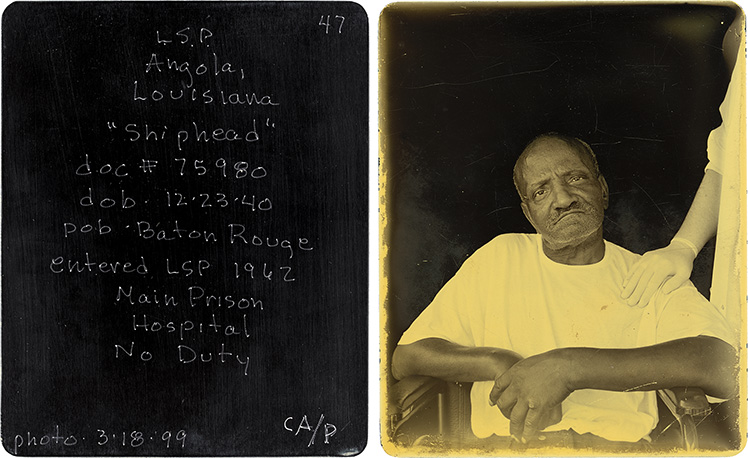 47
L.S.P.
Angola,
Louisiana
"Shiphead"
doc # 75980
dob. 12.23.40
pob. Baton Rouge
entered LSP 1962
Main Prison
Hospital
No Duty
photo. 3.18.99
CA/P